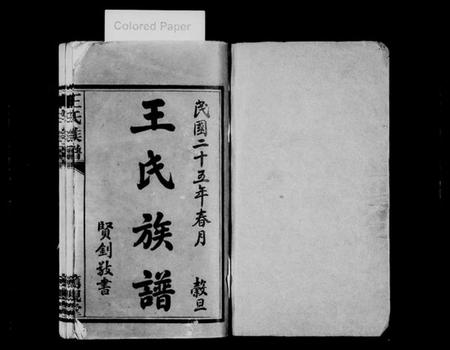 Colored Paper
民國二十五年春月 穀旦
王氏族譜
賢釗敬書
王氏族譜